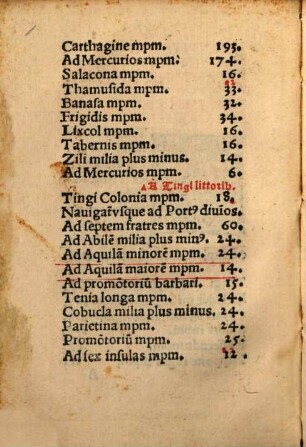 Carthagine mpm. 195.
Ad Mercurios mpm: 174.
Salacona mpm. 16.
Thamusida mpm. 33.
Banasa mpm. 32.
Frigidis mpm. 34.
Lixcol mpm. 16.
Tabernis mpm. 16.
Zili milia plus minus. 14.
Ad Mercurios mpm. 6.
A Tingi littorib.
Tingi Colonia mpm. 18.
Nauigatʳusque ad Portꝰ diuios.
Ad septem fratres mpm. 60.
Ad Abilē milia plus minꝰ. 24.
Ad Aquilā minorē mpm. 24.
Ad Aquilā maiorē mpm. 14.
Ad promōtoriū barbari. 15.
Tenia longa mpm. 24.
Cobucla milia plus minus. 24.
Parietina mpm. 24.
Promōtoriū mpm. 25.
Ad sex insulas mpm. 12.